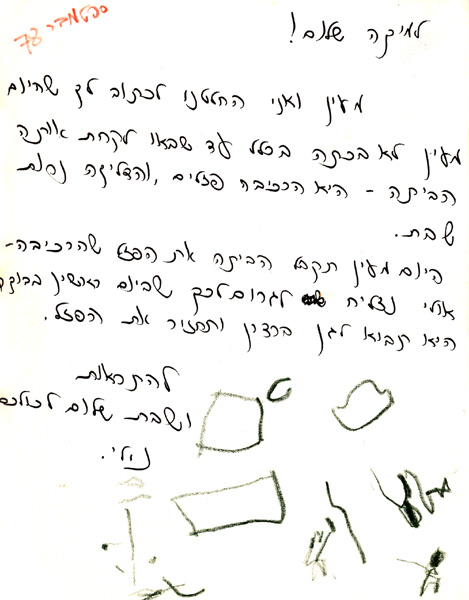 ספטמבר 78
למיקה שלום!
מעין ואני החלטנו לכתוב לך שהיום
מעין לא בכתה בכלל עד שבאו לקחת אותה
הביתה - היא הרכיבה פזלים, והדליקה נרות
שבת.
היום מעין תקבל הביתה את הפזל שהרכיבה-
אולי נצליח לגרום לכך שביום ראשון בבוקר
היא תבוא לגן ברצון ותחזיר את הפזל.
להתראות
ושבת שלום לכולכם
נילי.